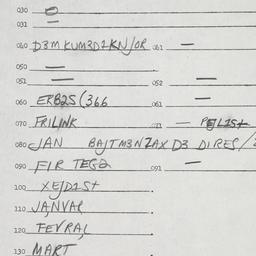 030 —
031 —
040 D3M KUM3D1KN/OR 061 —
050 —
051 — 052 —
060 ERB2S(366 061 —
070 FRILINK 071 —
080 JAN D3 DIRES/
090 FIR TEG2 091 —
100 XEJD1St
110 JANVAR
120 FEVRAL
130 MART